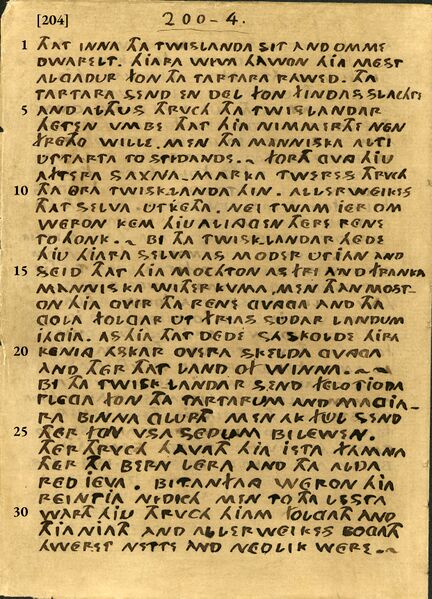 [204]
200-4.
1 THAT INNA THA TWISLANDA SIT AND OMME
DWARELT. HIARA WIVA HAVON HIA MEST
ALGADUR FON THA TARTARA RAWED. THA
TARTARA SEND EN DEL FON FINDAS SLACHTE
5 AND ALTHUS THRUCH THA TWISLANDAR
HETEN UMBE THAT HIA NIMMERTHE NEN
FRETHO WILLE. MEN THA MANNISKA ALTI
UTTARTA TO STRIDANDE. ~ FORTH GVNG HIU
AFTERA SAXNA-MARKA TWERES THRUCH
10 THA ORA TWISK-LANDA HIN. ALLERWEIKES
THAT SELVA UTKETHA. NEI TWAM IER OM
WERON KEM HIU ALINGEN THERE RENE
TO HONK. ~ BI THA TWISK-LANDAR HEDE
HIU HIARA SELVA AS MODER UTIAN AND
15 SEID THAT HIA MOCHTON AS FRI AND FRANKA
MANNISKA WITHERKUMA. MEN THAN MOST-
ON HIA OVIR THA RENE GVNGA AND THA
GOLA FOLGAR UT FRIAS SUDAR LANDUM
IAGIA. AS HIA THAT DEDE SA SKOLDE HIRA
20 KENIG ASKAR OVERA SKELDA GVNGA
AND THER THAT LAND OF WINNA. ~ ~
BI THA TWISK-LANDAR SEND FELO TIODA
PLEGA FON THA TARTARUM AND MAGIA-
RA BINNA GLUPTH MEN AK FUL SEND
25 THER FON USA SEDUM BILEWEN.
THER THRUCH HAVATH HIA IETA FAMNA
THER THA BERN LERA AND THA ALDA
RED IEVA. BITANFANG WERON HIA
REINTIA NIDICH MEN TO THA LESTA
30 WARTH HIU THRUCH HIAM FOLGATH AND
THIANIATH AND ALLERWEIKES BOGATH
HWERSA NETTE AND NEDLIK WERE. ~